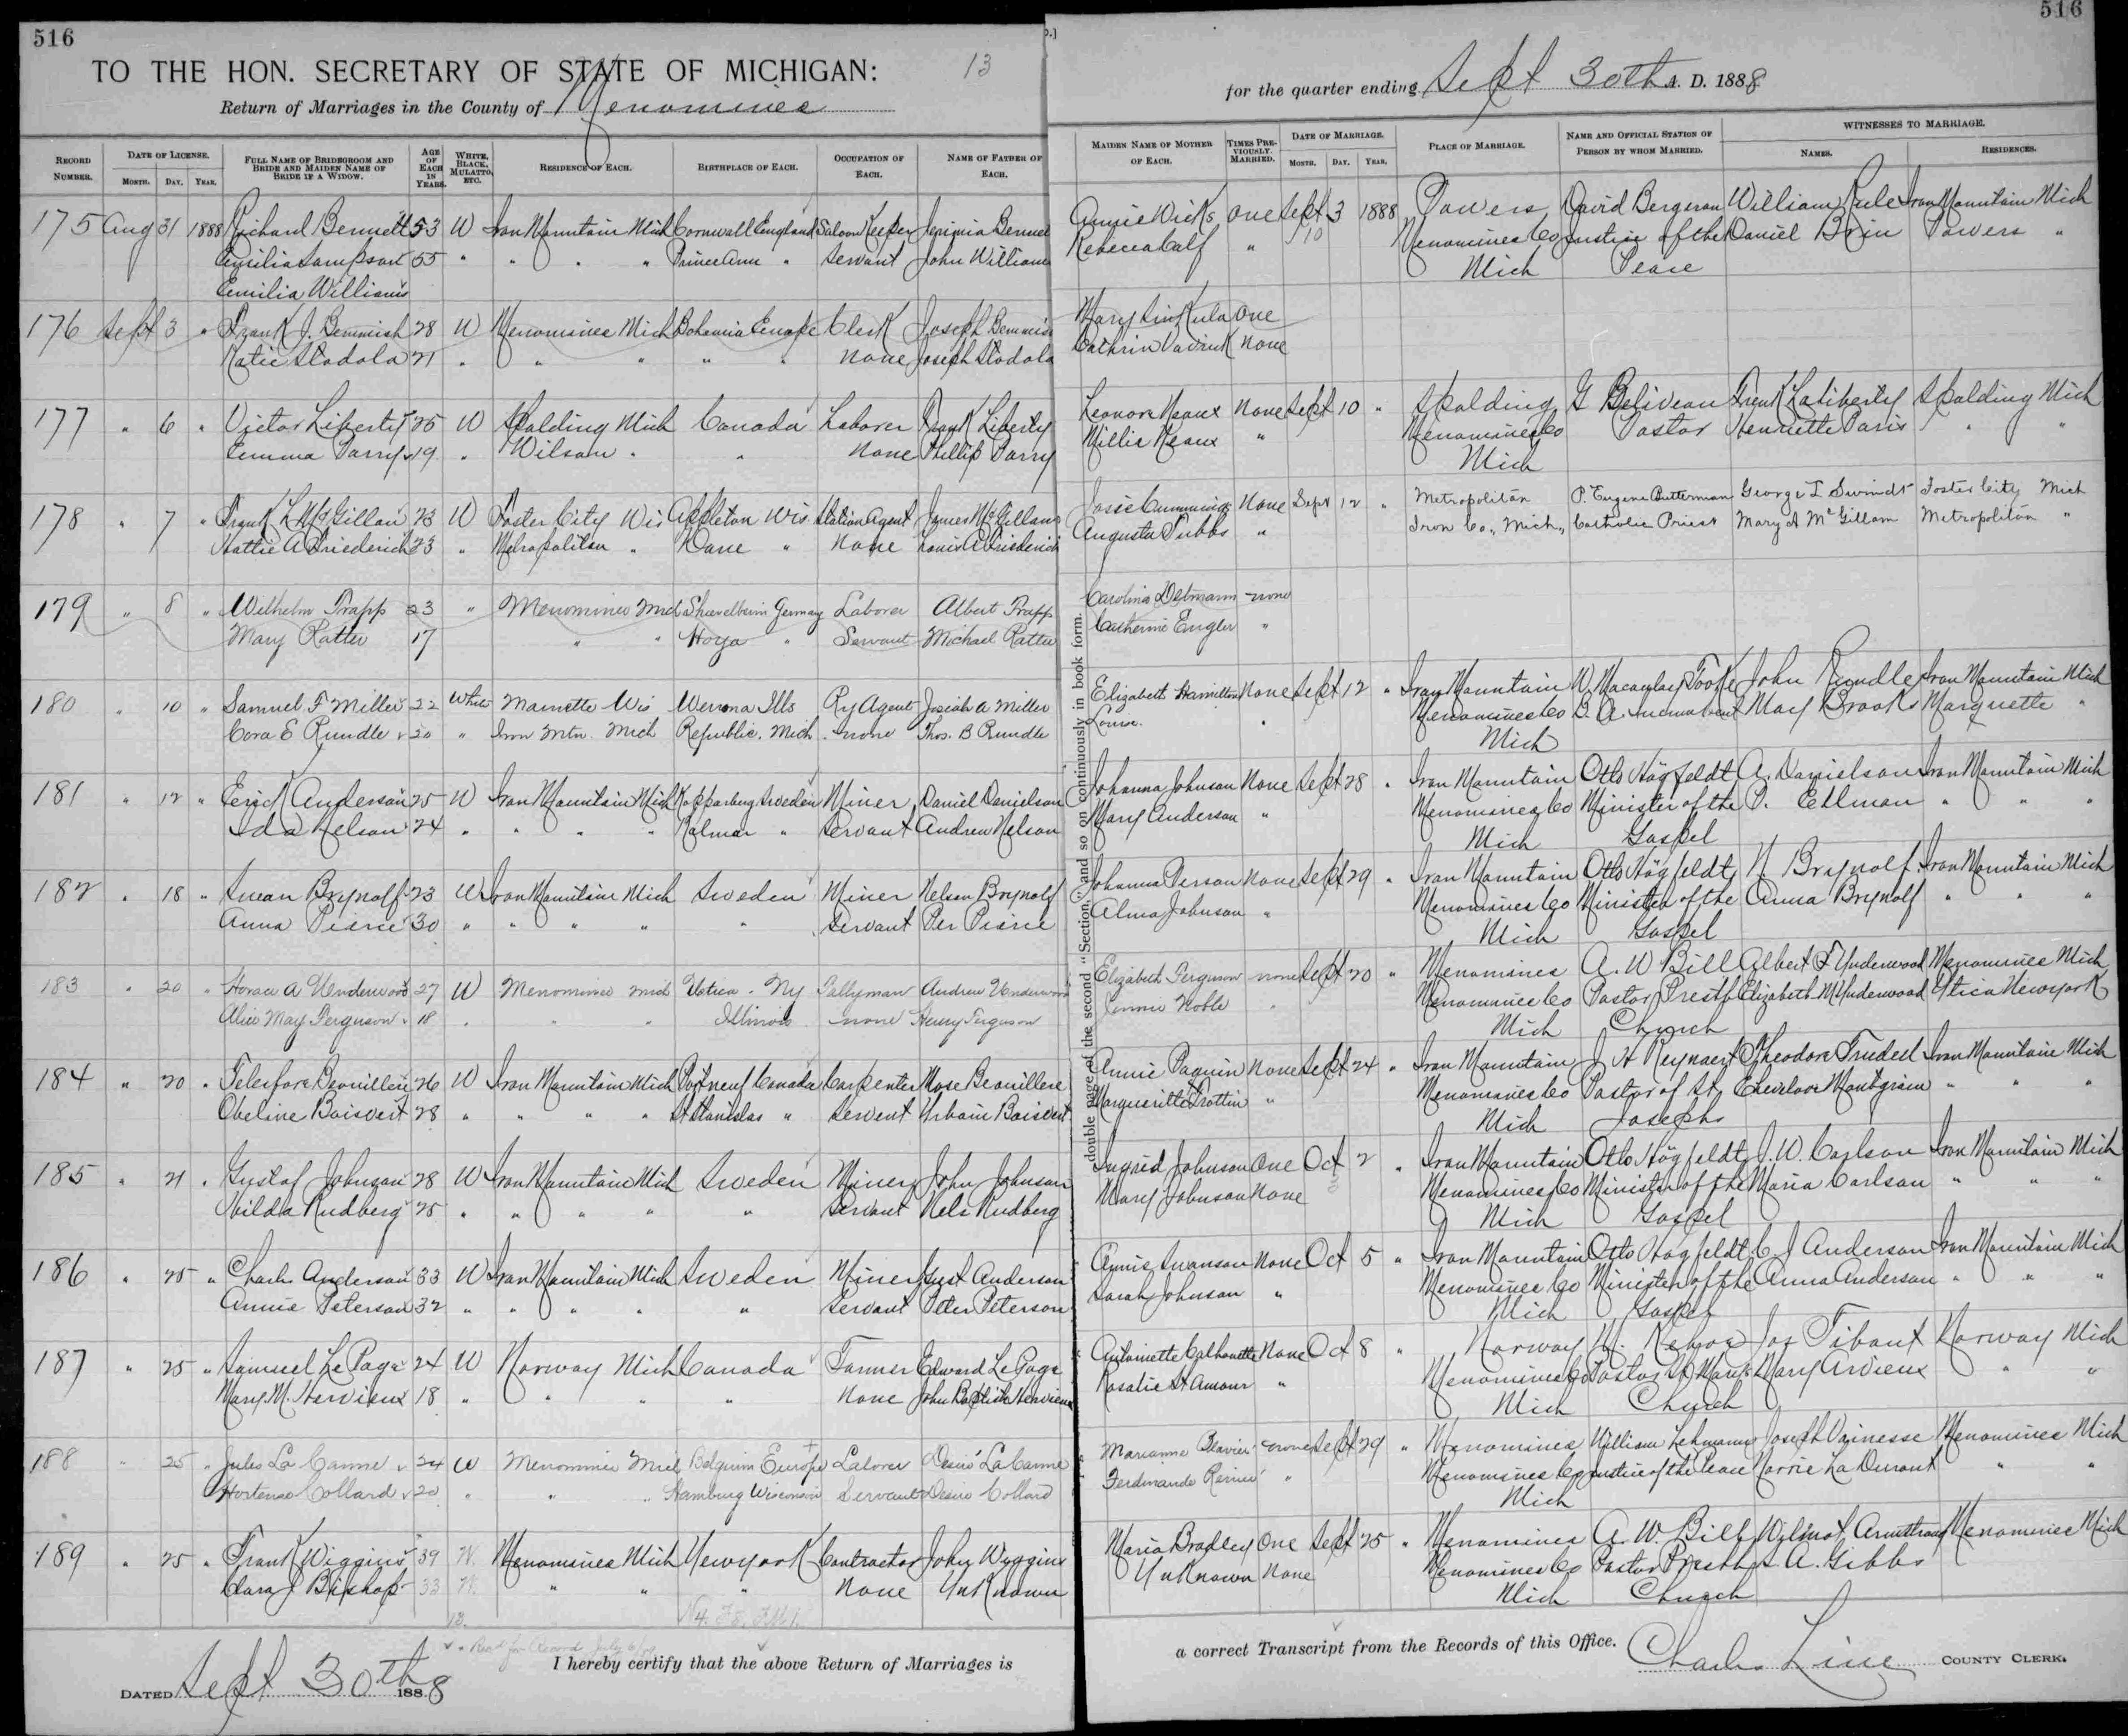 516
516
TO THE HON. SECRETARY OF STATE OF MICHIGAN: 13
Return of Marriages in the County of Menominee
for the quarter ending Sept 30th A. D. 1888
RECORD NUMBER. DATE OF LICENSE. MONTH. DAY. YEAR. FULL NAME OF BRIDEGROOM AND BRIDE AND MAIDEN NAME OF BRIDE IF A WIDOW. AGE OF EACH IN YEARS. WHITE, BLACK, MULATTO, ETC. RESIDENCE OF EACH. BIRTHPLACE OF EACH. OCCUPATION OF EACH. NAME OF FATHER OF EACH.
MAIDEN NAME OF MOTHER OF EACH. TIMES PREVIOUSLY MARRIED. DATE OF MARRIAGE. MONTH. DAY. YEAR. PLACE OF MARRIAGE. NAME AND OFFICIAL STATION OF PERSON BY WHOM MARRIED. WITNESSES TO MARRIAGE. NAMES. RESIDENCES.
175 Aug 31 1888 Richard Bennett 53 W Iron Mountain Mich Cornwall England Saloon Keeper Bennet Annie Wicks one Sept 3 1888 Powers David Bergeron William Rule Iron Mountain Mich
Emilia Sampson 55 " " " " " Servant John Williams Rebecca Calf " 10 Menominee Co Justice of the Daniel Powers "
Emilia Williams Mich Peace
176 Sept 3 " Frank J. Bemmish 28 W Menominee Mich Bohemia Europe Clerk Joseph Mary One
Katie Stodola 21 " " " " " None Joseph Stodola Cathrin None
177 " 6 " Victor Liberty 25 W Spalding Mich Canada Laborer Frank Liberty Leonora Neaux None Sept 10 " Spalding G Beliveau Frank Laliberty Spalding Mich
Emma Parry 19 " Wilson " " None Phillip Parry Millie Neaux " Menominee Co Pastor Henriette Paris " "
Mich
178 " 7 " Frank L McGillan 23 W Foster City Wis Appleton Wis Station Agent James McGillan Josie Cummings None Sept 12 " Metropolitan P. Eugene Butterman George I Swindt Foster City Mich
Hattie A Friederich 23 " Metropolitan " Dane " None Louis A Friederich Augusta Tubbs " Iron Co., Mich., Catholic Priest Mary A McGillam Metropolitan "
179 " 8 " Wilhelm Trapp 23 " Menominee Mich Germany Laborer Albert Trapp Carolina none
Mary Ratter 17 " " Hoya " Servant Michael Ratter Catherine Engler "
180 " 10 " Samuel F Miller 22 White Marnette Wis Wenona Ills Ry Agent Josiah A Miller Elizabeth Hamilton None Sept 12 " Iron Mountain W. Macaulay Tooke John Rundle Iron Mountain Mich
Cora E Rundle 20 " Iron Mtn. Mich Republic. Mich none Thos. B Rundle Louise. " Menominee Co B. A. Incumbent May Brooks Marquette "
Mich
181 " 12 " Erick Anderson 25 W Iron Mountain Mich Kopparberg Sweden Miner Daniel Danielson Johanna Johnson None Sept 28 " Iron Mountain Otto Högfeldt A. Danielson Iron Mountain Mich
Ida Nelson 24 " " " " Kalmar " Servant Andrew Nelson Mary Anderson " Menominee Co Minister of the P. Ellman " " "
Mich Gospel
182 " 18 " Swan Brynolf 23 W Iron Mountain Mich Sweden Miner Nelson Brynolf Johanna Person None Sept 29 " Iron Mountain Otto Högfeldt N Brynolf Iron Mountain Mich
Anna Pierce 30 " " " " " Servant Per Pierce Alma Johnson " Menominee Co Minister of the Anna Brynolf " " "
Mich Gospel
183 " 20 " Horace A Underwood 27 W Menominee Mich Utica . Ny Tallyman Andrew Underwood Elizabeth Ferguson none Sept 20 " Menominee A. W Bill Albert F Underwood Menominee Mich
Alice May Ferguson 18 " " " Illinois none Henry Ferguson Jennie Noble " Menominee Co Pastor Presbt Elizabeth M Underwood Utica Newyork
Mich Church
184 " 20 " Telesfore Beouillere 26 W Iron Mountain Mich Portneuf Canada Carpenter Mose Beouillere Annie Paquin None Sept 24 " Iron Mountain J H Reynaert Theodore Trudell Iron Mountain Mich
Obeline Boisvert 28 " " " " St Stanislas " Servent Urbain Boisvert Margueritte Trottin " Menominee Co Pastor of St Montgrain " " "
Mich Josephs
185 " 21 " Gustaf Johnson 28 W Iron Mountain Mich Sweden Miner John Johnson Ingrid Johnson One Oct 2 " Iron Mountain Otto Högfeldt J. W. Carlson Iron Mountain Mich
Hilda Rudberg 25 " " " " " Servant Nels Rudberg Mary Johnson None Menominee Co Minister of the Maria Carlson " " "
Mich Gospel
186 " 25 " Charles Anderson 33 W Iron Mountain Mich Sweden Miner Gust Anderson Annie Swanson None Oct 5 " Iron Mountain Otto Högfeldt C J Anderson Iron Mountain Mich
Annie Peterson 32 " " " " " Servant Peter Peterson Sarah Johnson " Menominee Co Minister of the Anna Anderson " " "
Mich Gospel
187 " 25 " Samuel LePage 24 W Norway Mich Canada Farmer Edward LePage Antoinette Calhouette None Oct 8 " Norway Jos Tibant Norway Mich
Mary M. Hervieux 18 " " " " None John Baptiste Hervieux Rosalie St Amour " Menominee Co Pastor St Marys Mary Arvieux " "
Mich Church
188 " 25 " Jules La Canne 24 W Menominee Mich Belguim Europe Laborer Desire La Canne Marianne none Sept 29 " Menominee William Lehmann Joseph Menominee Mich
Hortense Collard 20 " " " Hamburg Wisconsin Servant Desire Collard Ferdinande " Menominee Co Justice of the Peace " "
Mich
189 " 25 " Frank Wiggins 39 W. Menominee Mich Newyork Contractor John Wiggins Maria Bradley One Sept 25 " Menominee A. W. Bill Wilmot Armstrong Menominee Mich
Clara J Bishop 33 W. " " " None Unknown Unknown None Menominee Co Pastor Presbt S A. Gibbs
Mich Church
double page of the second "Section," and so on continuously in book form.
I hereby certify that the above Return of Marriages is
a correct Transcript from the Records of this Office. Charles Line COUNTY CLERK.
DATED Sept 30th 1888